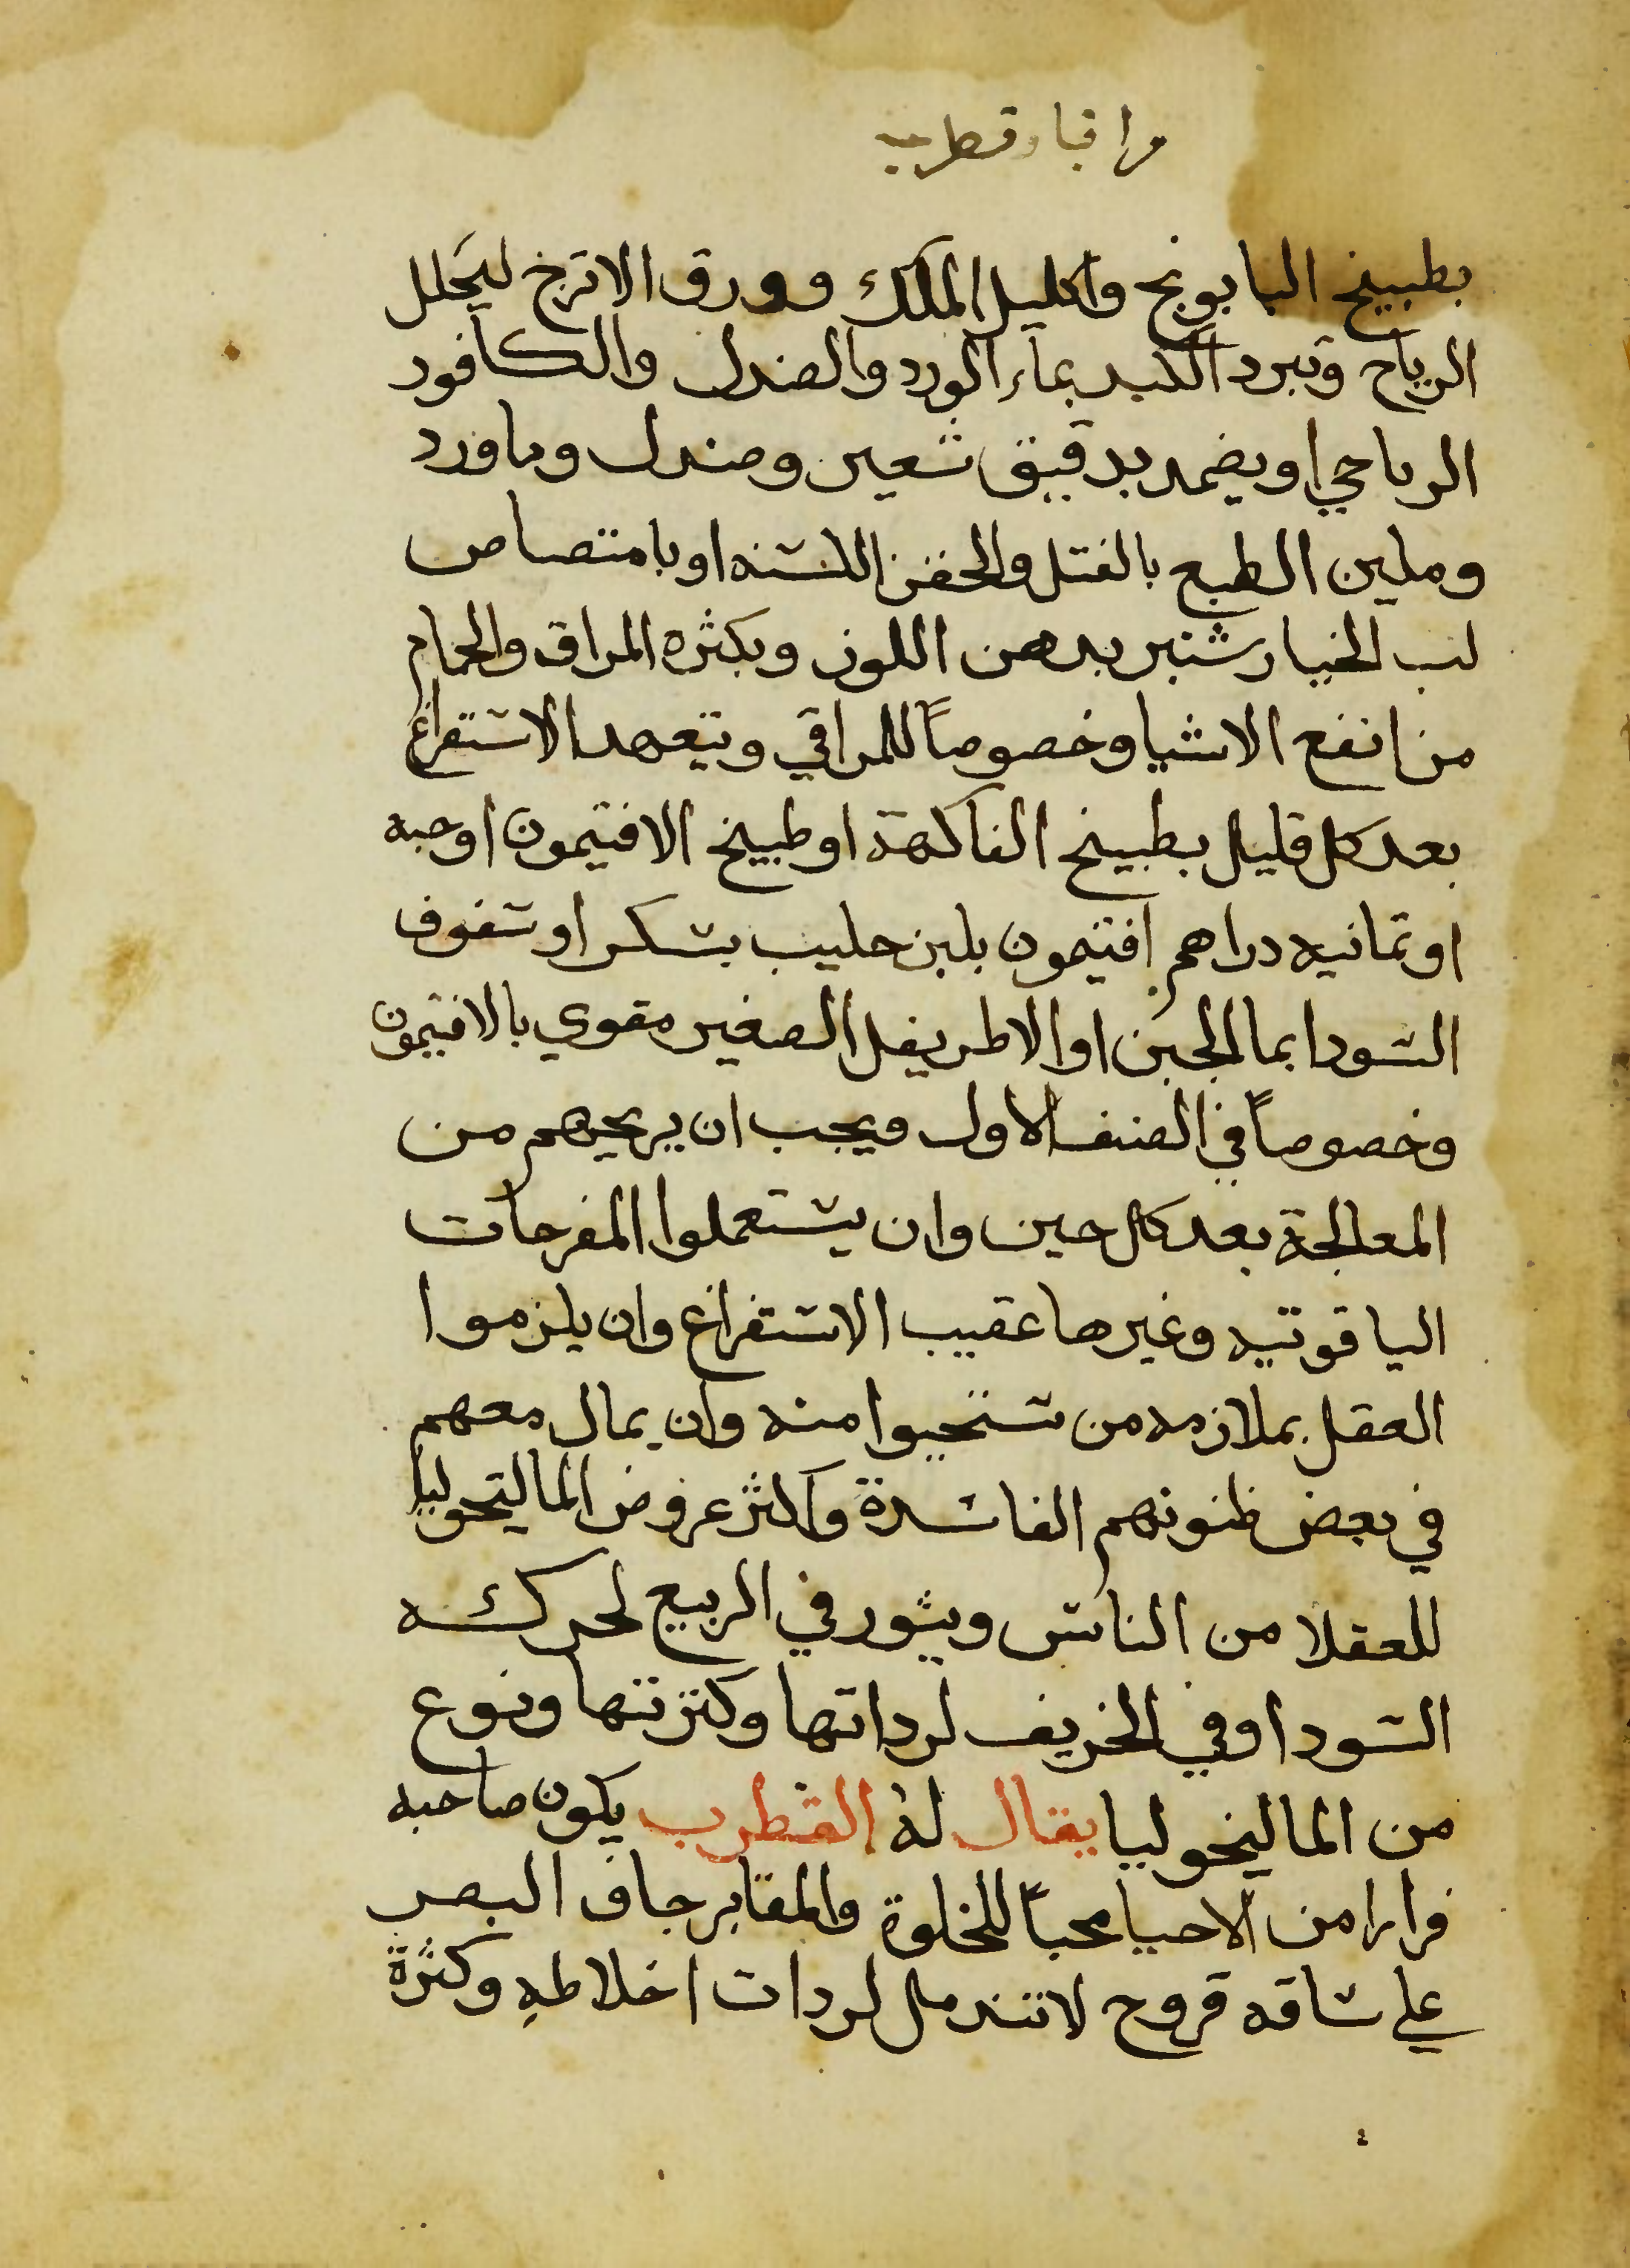 بطبيخ البابونج واكليل الملك وورق الاترج ليحلل
الرياح وتبرد الكبد بماء الورد والصندل والكافور
الرباحي او يضمد بدقيق شعير وصندل وماورد
وملين الطبع بالفتل والحقن اللينه او بامتصاص
لب الخيار شنبر بدهن اللوز وبكثره المراق والحمام
من انفع الاشيا وخصوصاً للمراقي ويتعهد الاستفراغ
بعد كل قليل بطبيخ الفاكهة او طبيخ الافتيمون او حبه
او ثمانيه دراهم افتيمون بلبن حليب بسكر او سفوف
السودا بما الجبن او الاطريفل الصغير مقوي بالافتيمون
وخصوصاً في الصنف الاول ويجب ان يريحهم من
المعالجة بعد كل حين وان يستعملوا المفرحات
الياقوتيه وغيرها عقيب الاستفراغ وان يلزموا
العقل بملازمه من يستحيوا منه وان يمال معهم
في بعض ظنونهم الفاسدة واكثر عروض الماليخوليا
للعقلا من الناس ويثور في الربيع لحركه
السودا وفي الخريف لرداتها وكثرتها ونوع
من الماليخوليا يقال له القطرب يكون صاحبه
فرارا من الاحيا محباً للخلوة والمقابر جاف البصر
علي ساقه قروح لا تندمل لردات اخلاطه وكثرة